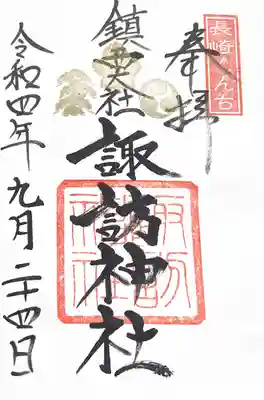 長崎のへそ
奉拝
鎮西大社
諏訪神社
令和四年九月二十四日